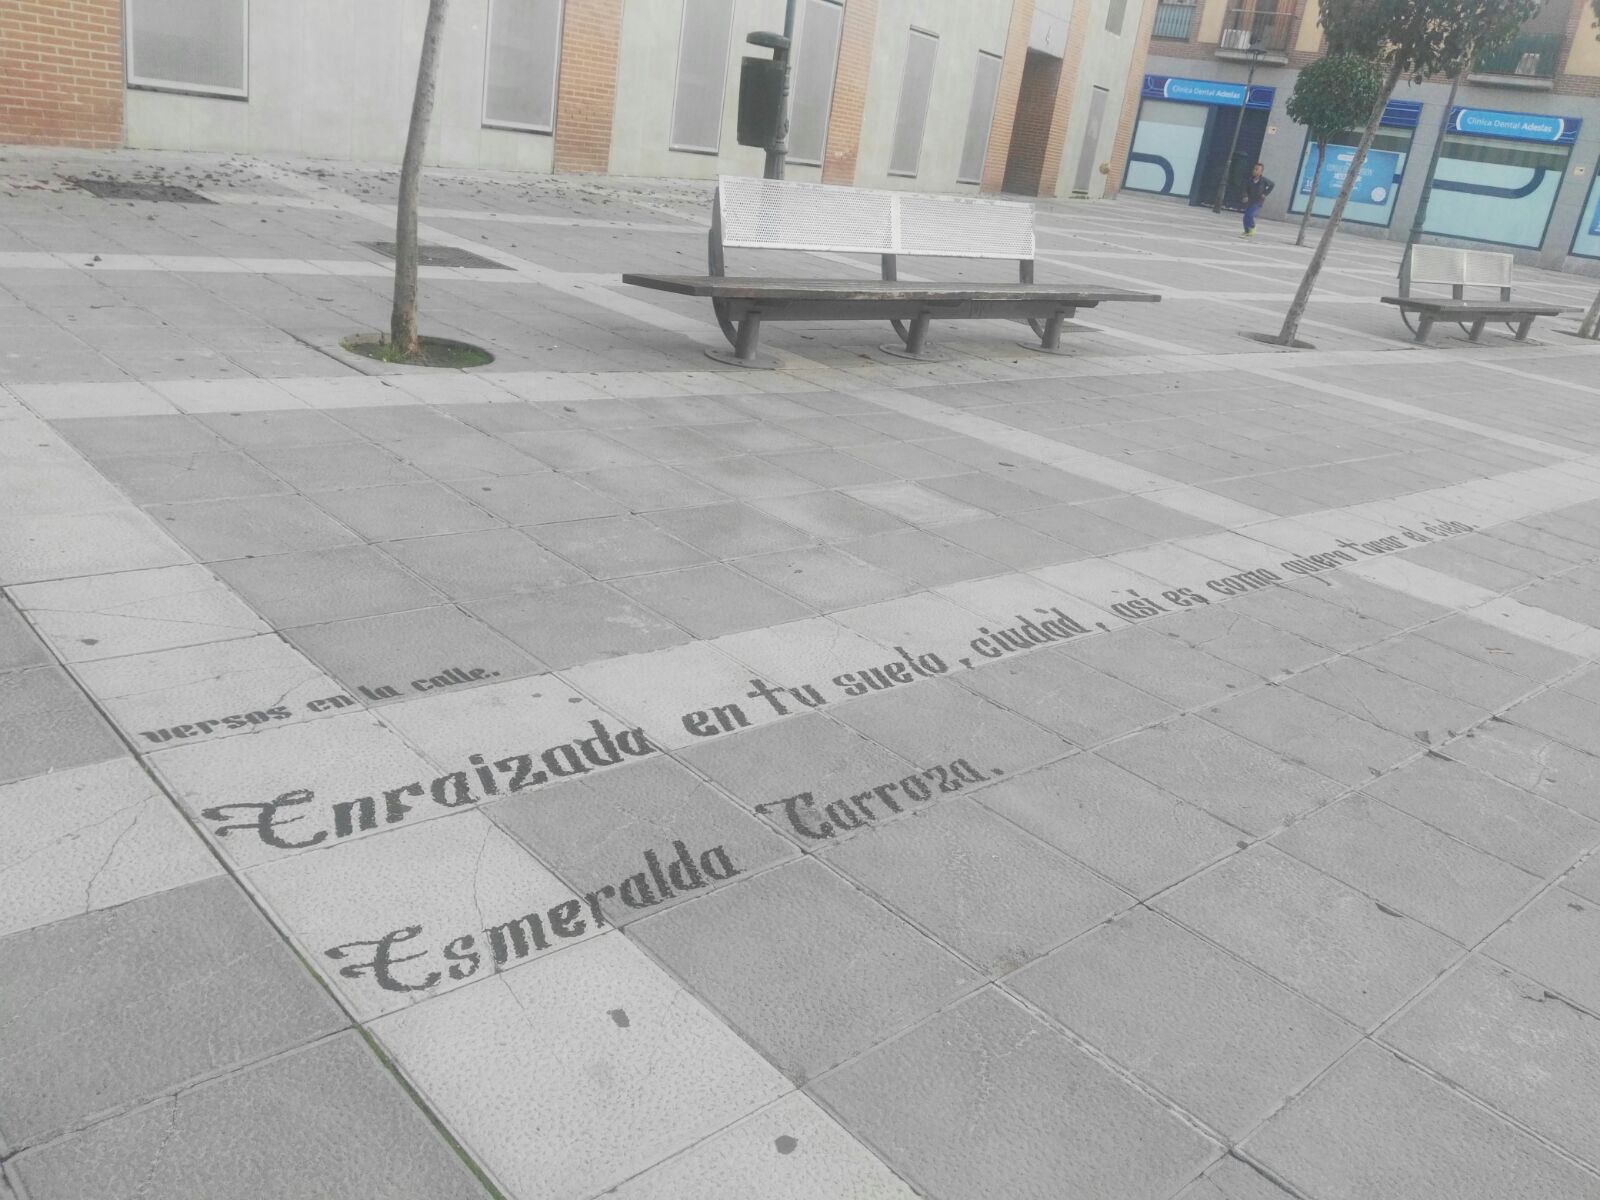 Clínica Dental Adeslas
Clínica Dental Adeslas
versos en la calle.
Enraizada en tu suelo, ciudad, así es como quiero tocar el cielo.
Esmeralda Carroza.